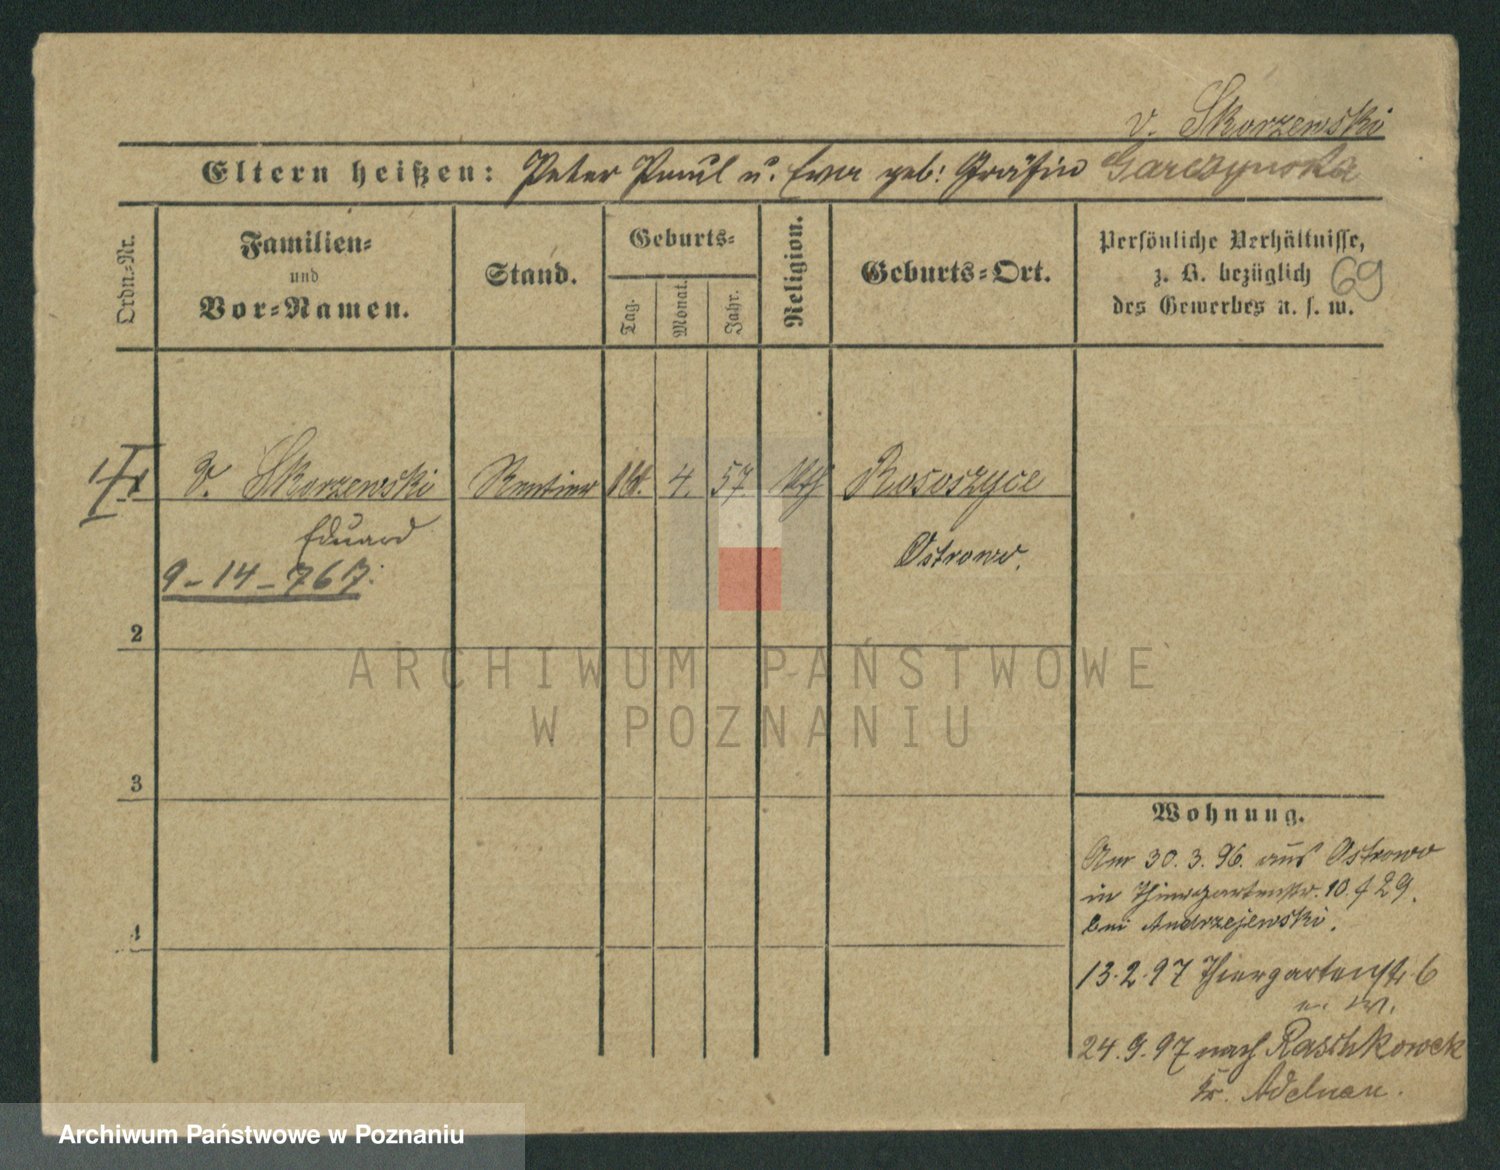 v. Skorzewski
Eltern heißen: Peter Paul u. Ewa geb: Gräfin Garczynska
Ordn.-Nr.
Familien-
und
Vor-Namen.
Stand.
Geburts-
Tag.
Monat.
Jahr.
Religion.
Geburts-Ort.
Persönliche Verhältnisse,
z. B. bezüglich
des Gewerbes u. s. w.
69
1 v. Skorzewski Rentier 4. 57 kth Rososzyce
Eduard
Ostrowo.
9-14-767.
2
3
4
Wohnung.
Am 30. 3. 96. aus Ostrowo
in Thiergartenstr. 10. 29.
bei Andrzejewski.
13.2.97 Thiergartenstr. 6
24.9.97 nach Raschkowek
Kr. Adelnau.
ARCHIWUM PAŃSTWOWE
W POZNANIU
Archiwum Państwowe w Poznaniu